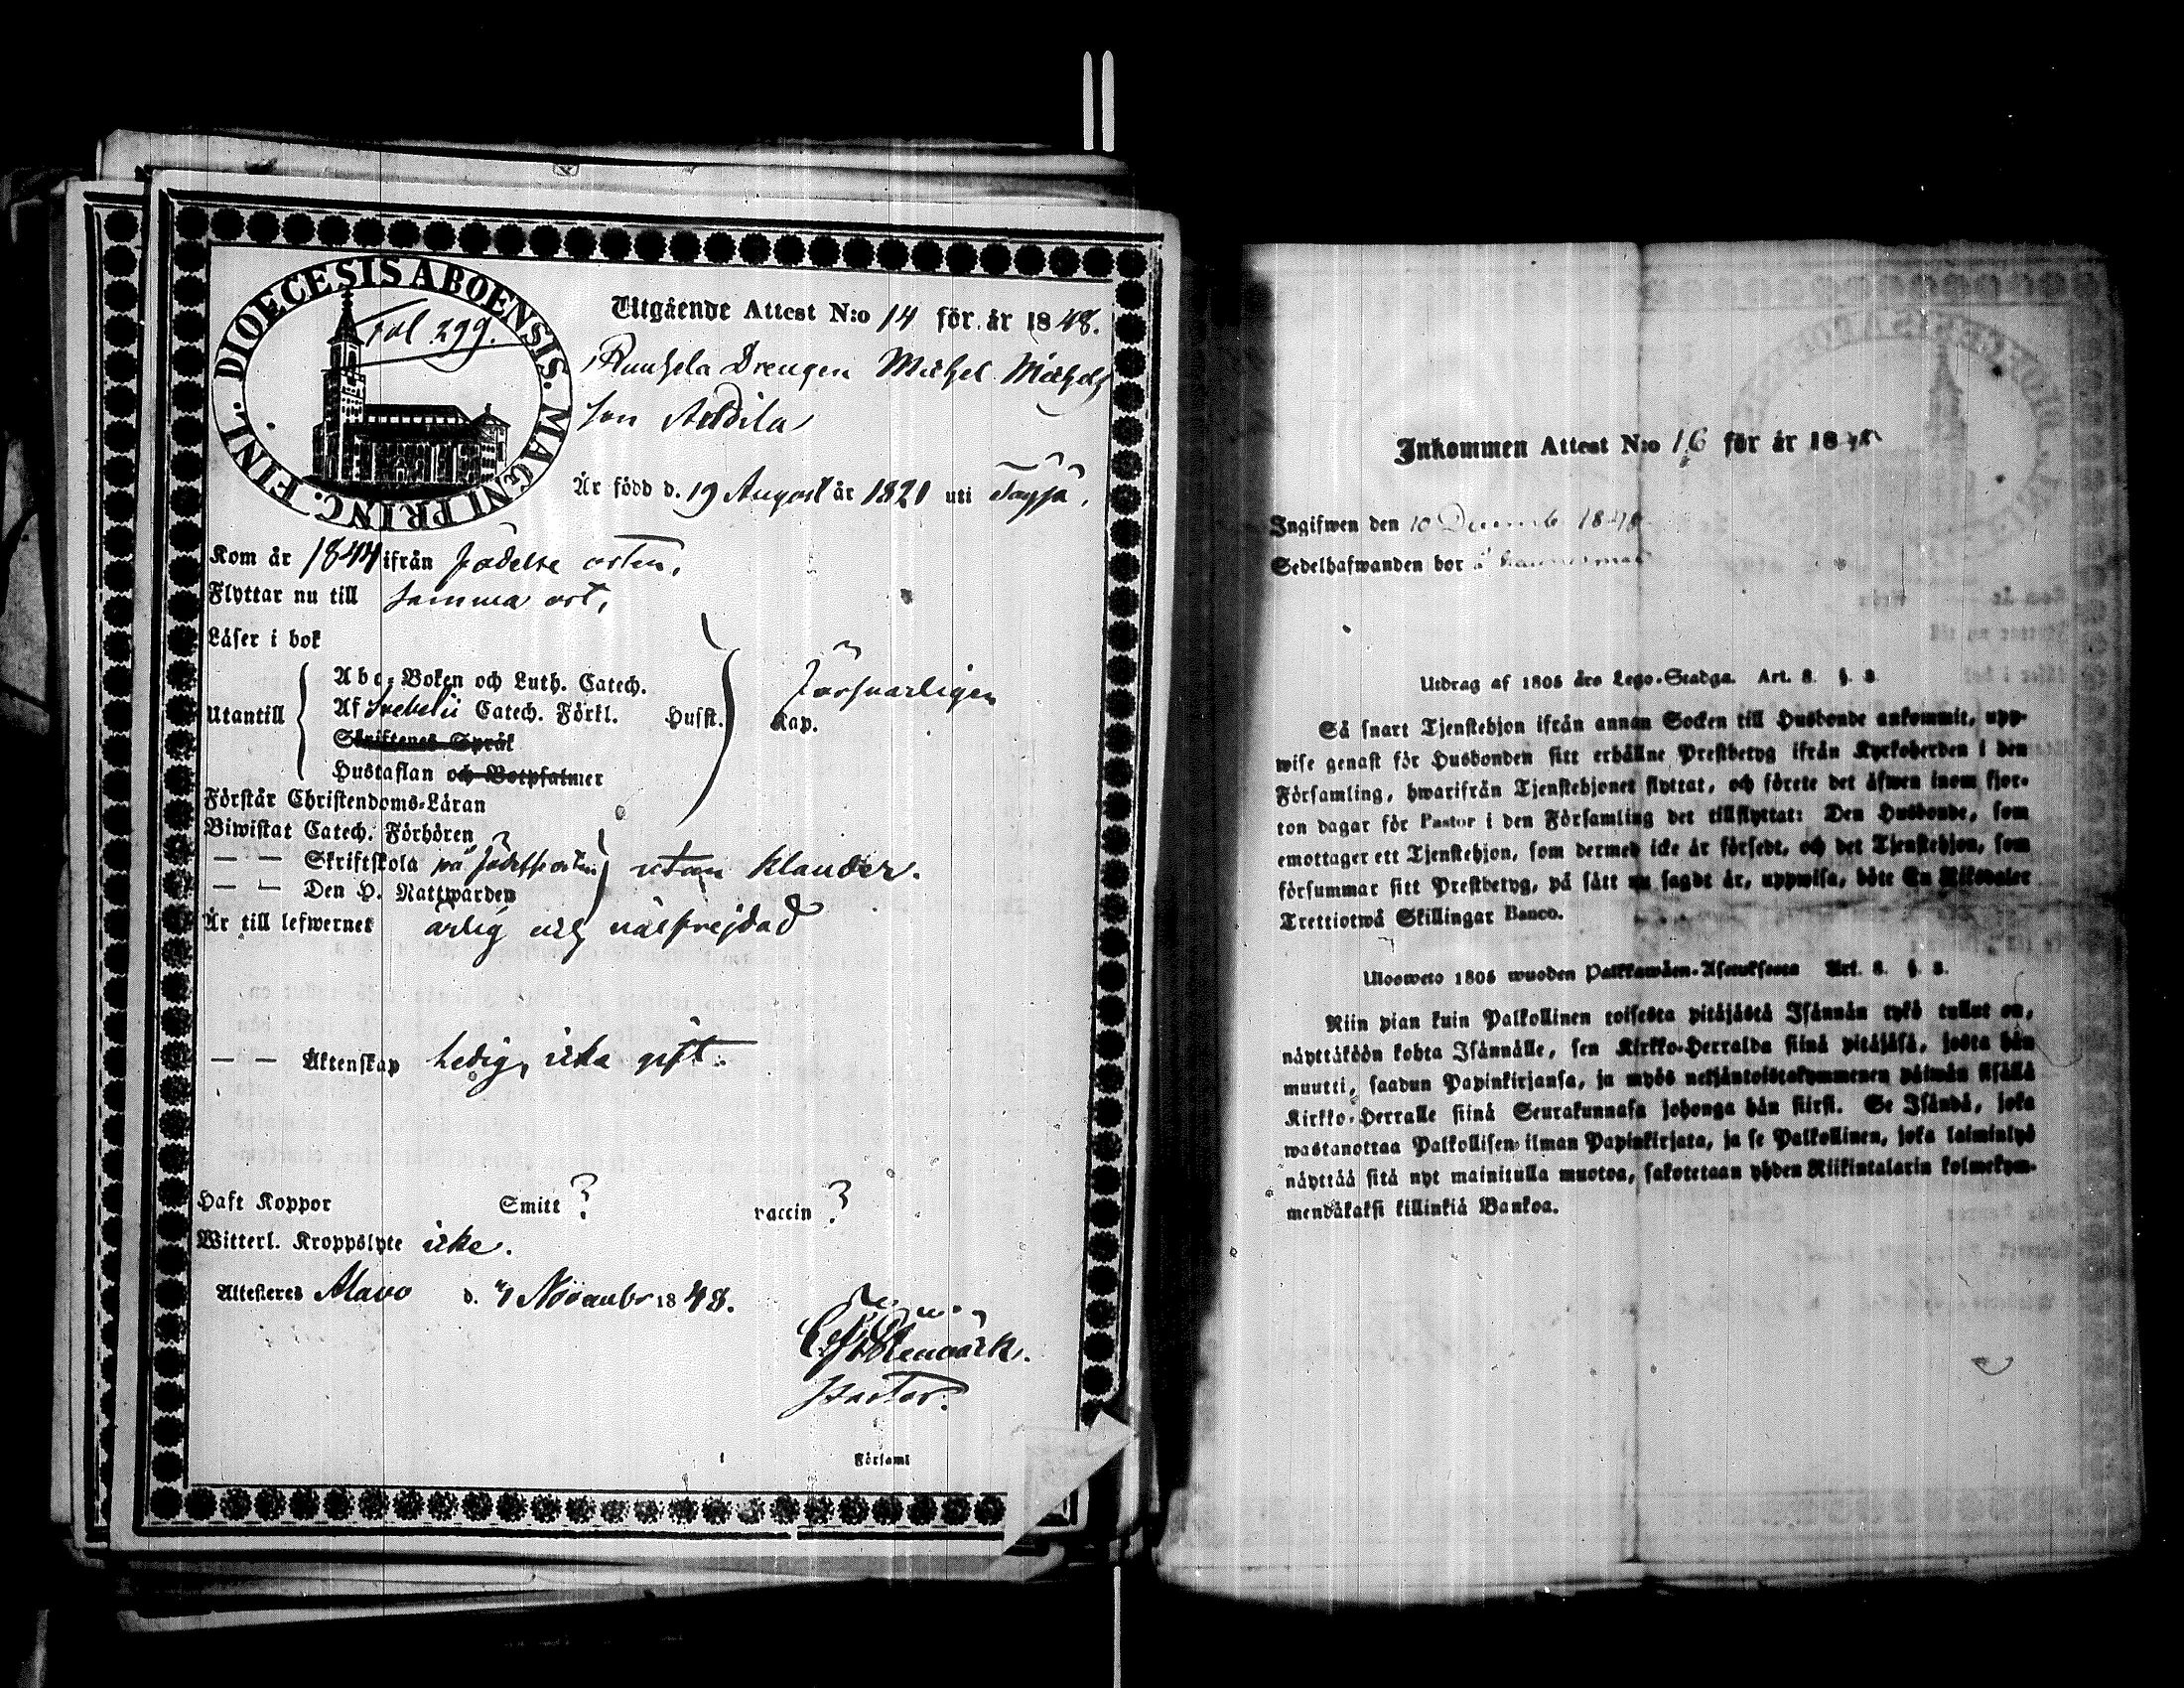 DIOECESIS ABOENSIS. MAGNI PRINC. FINL.
Fol 299.
Utgående Attest N:o 14 för år 1848.
Drengen Michel Michels
son Anttila
Är född d. 19 August år 1821 uti
Kom år 1844 ifrån födelse orten,
Flyttar nu till samma ort,
Läser i bok
Abc-Boken och Luth. Catech.
Utantill Af Svebelii Catech. Förkl. Husst. Kap. försvarligen
Skriftenes Språk
Hustaflan och Botpsalmer
Förstår Christendoms-Läran
Biwistat Catech. Förhören
— — Skriftskola på födelseorten utan klander.
— — Den H. Nattwarden
Är till lefwernet ärlig och välfrejdad
— — Äktenskap Ledig, icke gift.
Haft Koppor Smitt ? vaccin ?
Witterl. Kroppslyte icke.
Attesteres Alavo d. 4 Novembr 1848.
Pastor.
i Församl
Inkommen Attest N:o 16 för år 1848
Ingifwen den 10 Decemb 1848
Sedelhafwanden bor å
Utdrag af 1805 års Lego-Stadga. Art. 8. §. 8.
Så snart Tjenstehjon ifrån annan Socken till Husbonde ankommit, upp-
wise genast för Husbonden sitt erhållne Prestbetyg ifrån Kyrkoherden i den
Församling, hwarifrån Tjenstehjonet flyttat, och förete det äfwen inom fjor-
ton dagar för Pastor i den Församling det tillflyttat: Den Husbonde, som
emottager ett Tjenstehjon, som dermed icke är försedt, och det Tjenstehjon, som
försummar sitt Prestbetyg, på sätt nu sagdt är, uppwisa, böte En Riksdaler
Trettiotwå Skillingar Banco.
Ulosweto 1805 wuoden Palkkawäen-Asetuksesta Art. 8. §. 8.
Niin pian kuin Palkollinen toisesta pitäjästä Isännän tykö tullut on,
näyttäköön kohta Isännälle, sen Kirkko-Herralda siinä pitäjäsä, josta hän
muutti, saadun Papinkirjansa, ja myös neljäntoistakymmenen päiwän sisällä
Kirkko-Herralle siinä Seurakunnasa johonga hän siirsi. Se Isändä, joka
wastanottaa Palkollisen ilman Papinkirjata, ja se Palkollinen, joka laiminlyö
näyttää sitä nyt mainitulla muotoa, sakotetaan yhden Riikintalarin kolmekym-
mendäkaksi killinkiä Bankoa.